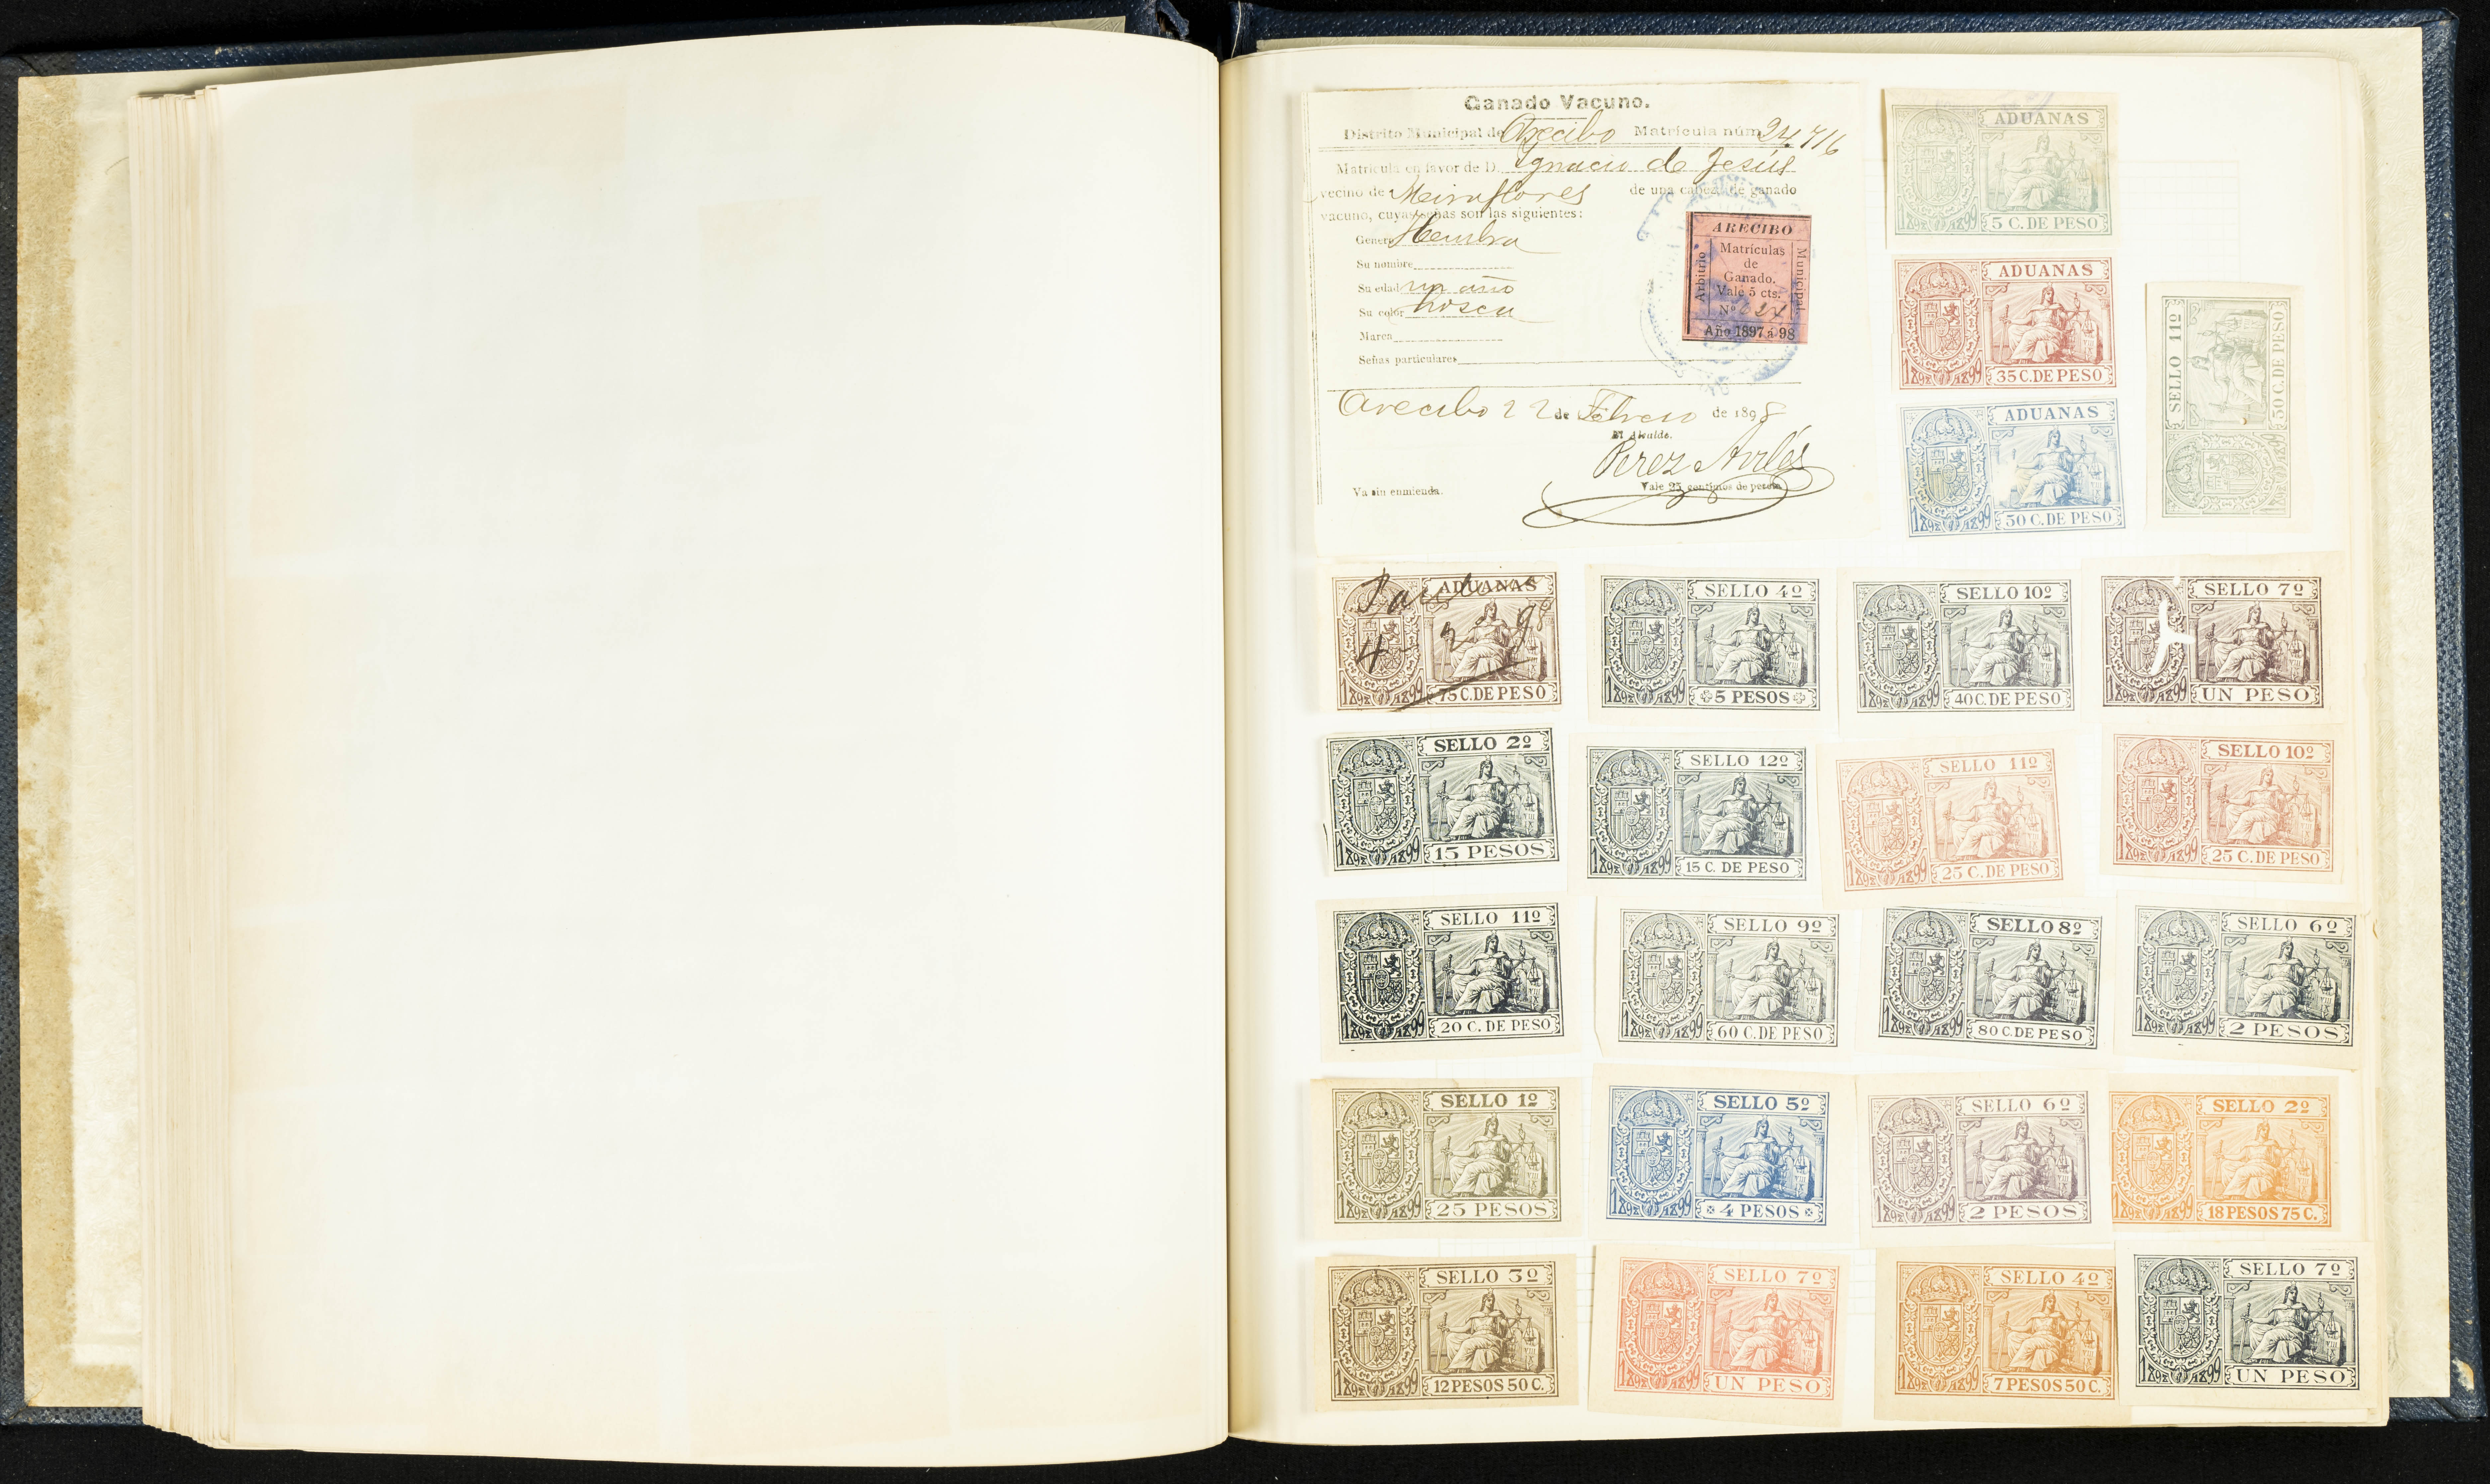 Ganado Vacuno.
Distrito Municipal de Arecibo Matrícula núm 24.716
Matrícula en favor de D. Ygnacio de Jesús
vecino de Miraflores de una cabeza de ganado
vacuno, cuyas señas son las siguientes:
Genero Hembra
Su nombre
Su edad un año
Su color hosca
Marca
Señas particulares
Arecibo 22 de Febrero de 1898
El Alcalde.
Perez Avilés
Va sin enmienda.
Vale 25 centimos de peseta
ARECIBO
Arbitrio
Matrículas
de
Ganado.
Vale 5 cts.
Nº
Municipal.
Año 1897 á 98
ADUANAS
1898 1899 5 C. DE PESO
ADUANAS
1898 1899 35 C. DE PESO
ADUANAS
1898 1899 50 C. DE PESO
SELLO 11º
1898 1899 50 C. DE PESO
ADUANAS
4 - 2 - 98
1898 1899 75 C. DE PESO
SELLO 4º
1898 1899 5 PESOS
SELLO 10º
1898 1899 40 C. DE PESO
SELLO 7º
1898 1899 UN PESO
SELLO 2º
1898 1899 15 PESOS
SELLO 12º
1898 1899 15 C. DE PESO
SELLO 11º
1898 1899 25 C. DE PESO
SELLO 10º
1898 1899 25 C. DE PESO
SELLO 11º
1898 1899 20 C. DE PESO
SELLO 9º
1898 1899 60 C. DE PESO
SELLO 8º
1898 1899 80 C. DE PESO
SELLO 6º
1898 1899 2 PESOS
SELLO 1º
1898 1899 25 PESOS
SELLO 5º
1898 1899 4 PESOS
SELLO 6º
1898 1899 2 PESOS
SELLO 2º
1898 1899 18 PESOS 75 C.
SELLO 3º
1898 1899 12 PESOS 50 C.
SELLO 7º
1898 1899 UN PESO
SELLO 4º
1898 1899 7 PESOS 50 C.
SELLO 7º
1898 1899 UN PESO